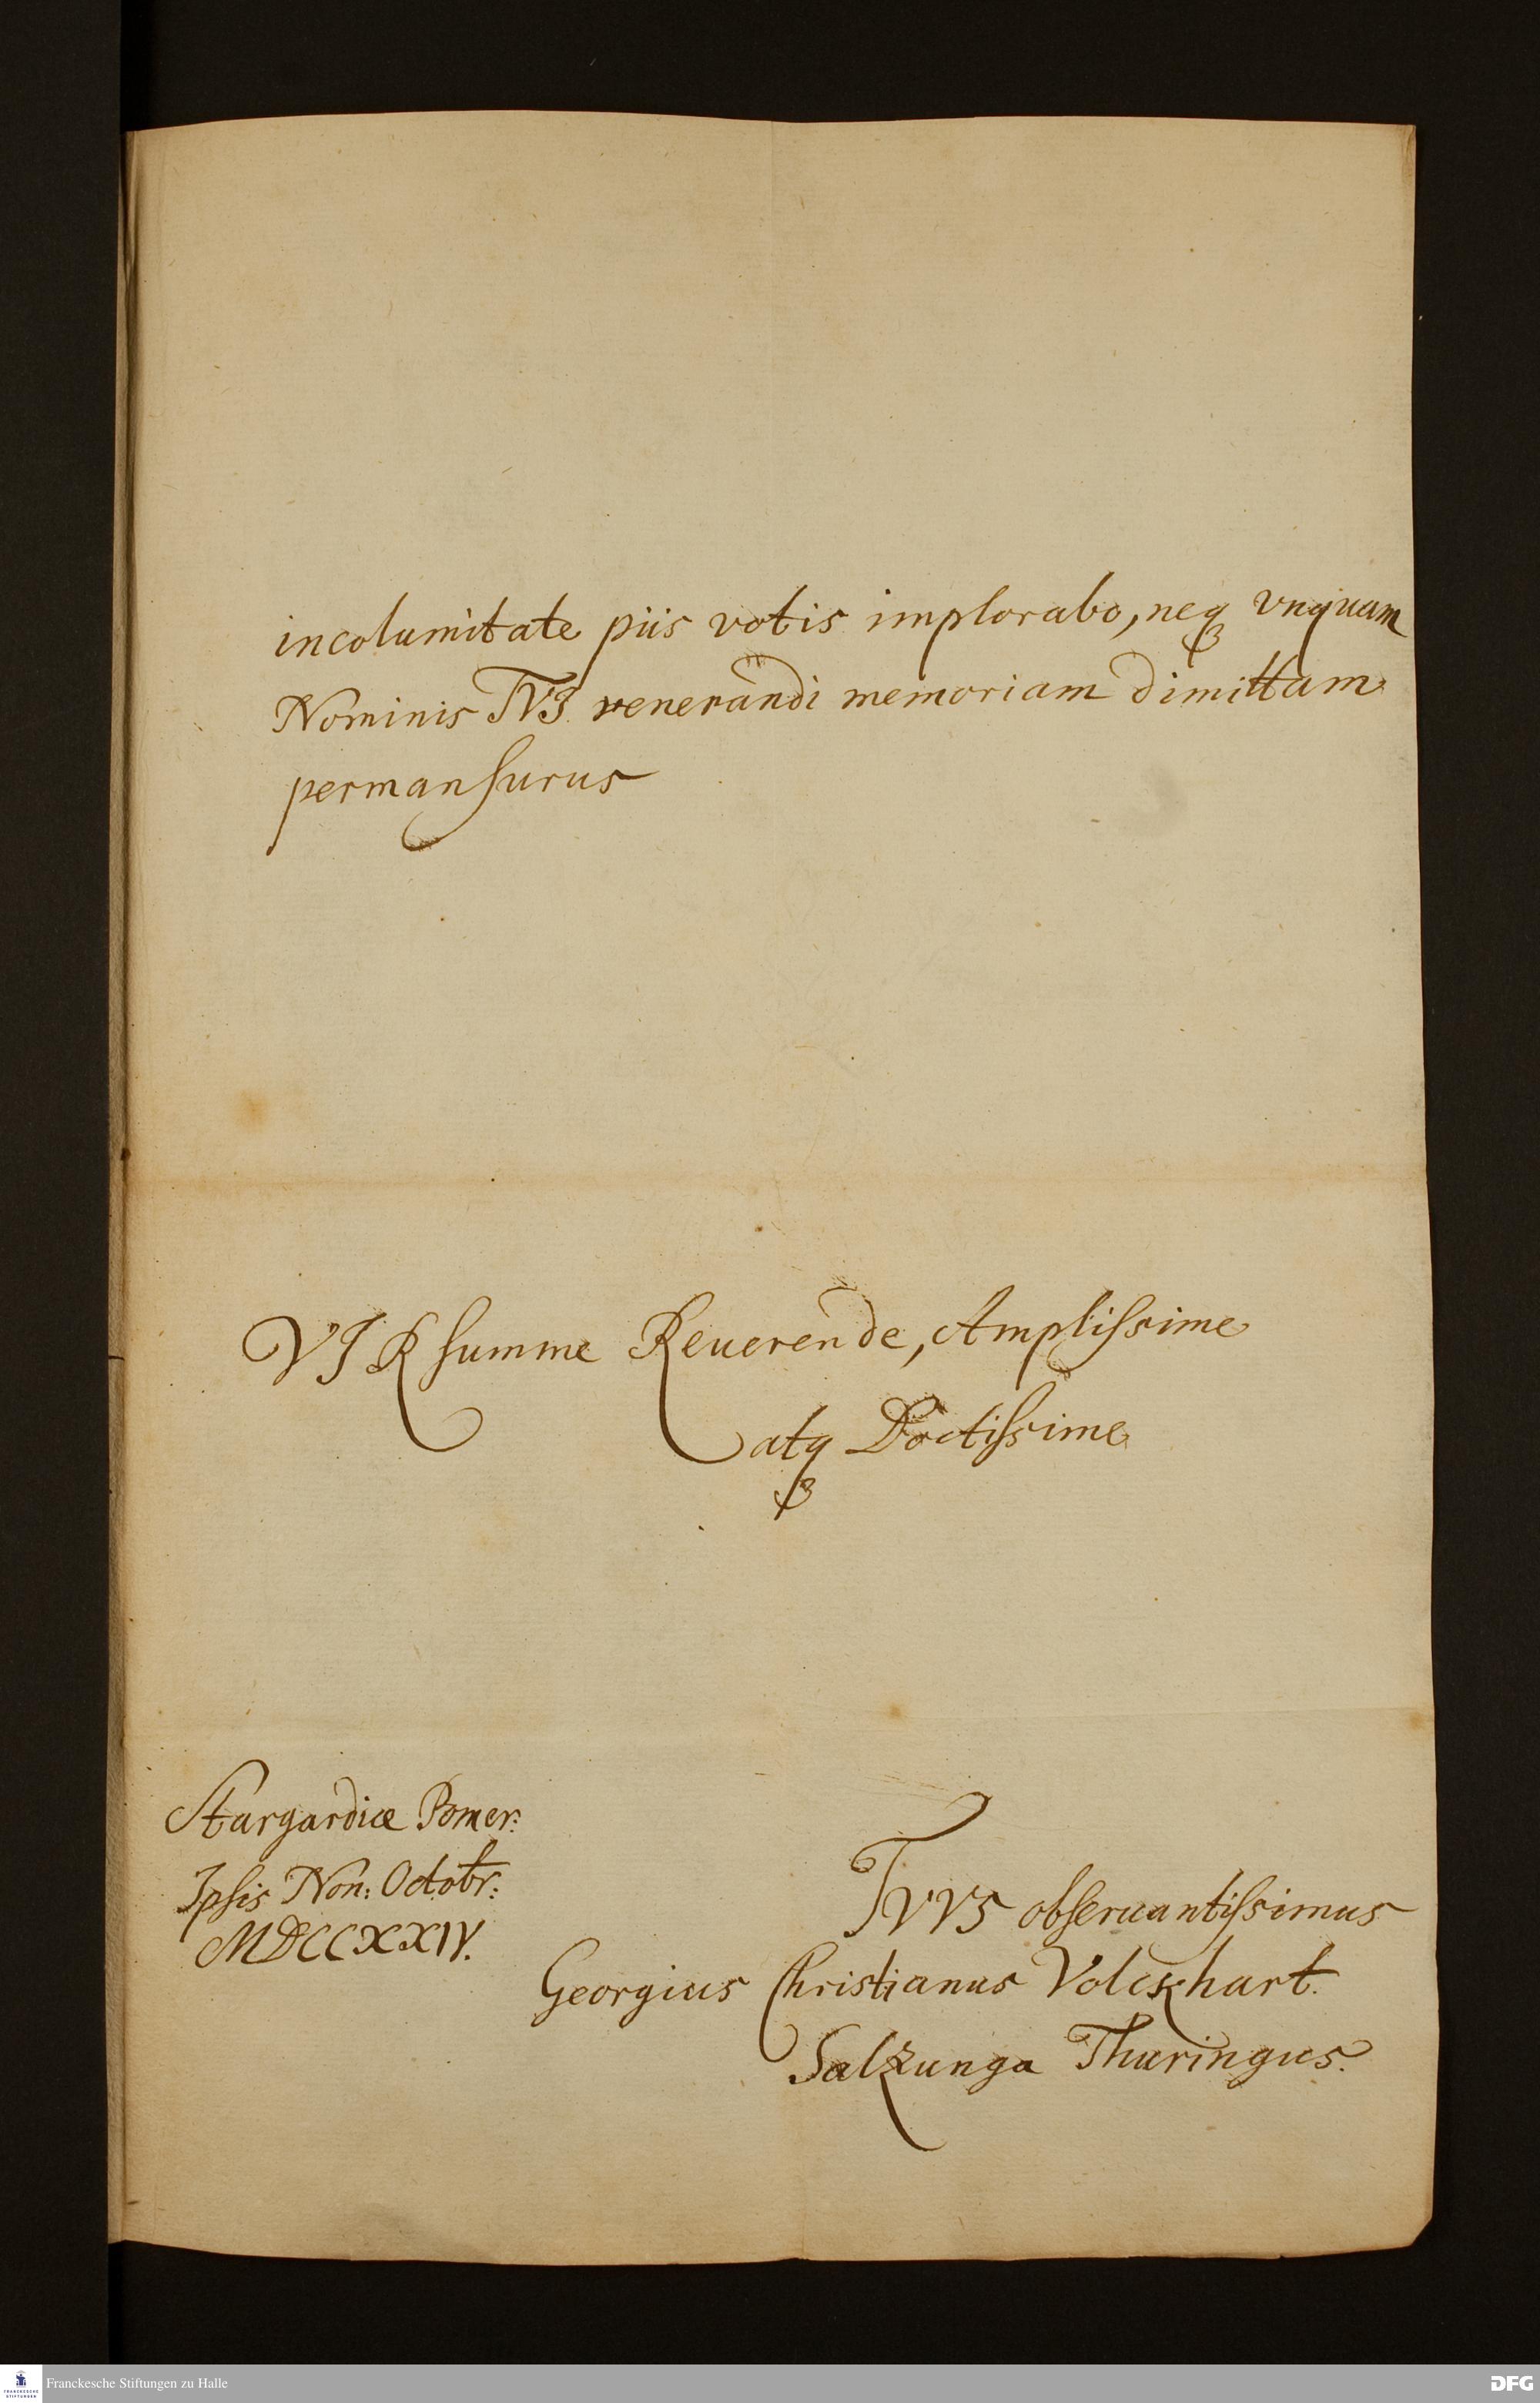 incolumitate piis votis implorabo, neqꝫ vnquam
Nominis TVI venerandi memoriam dimittam
permanſurus
VIR ſumme Reuerende, Ampliſsime
atqꝫ Doctiſsime
Stargardiæ Pomer:
Ipſis Non: Octobr:
MDCCXXIV.
TVVS obſeruantiſsimus
Georgius Chriſtianus Volckhart.
Salzunga Thuringus.
Franckesche Stiftungen zu Halle
FRANCKESCHE
STIFTUNGEN
DFG